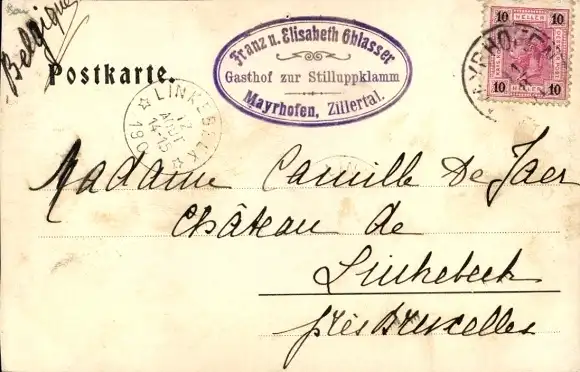 Belgique
Postkarte.
Franz u. Elisabeth Ghlasser
Gasthof zur Stilluppklamm
Mayrhofen, Zillertal.
10 10
HELLER
10 10
LINKEBEEK
12
AOUT
14-15
Madame Camille De Jaer
Château de
Linkebeek
près Bruxelles